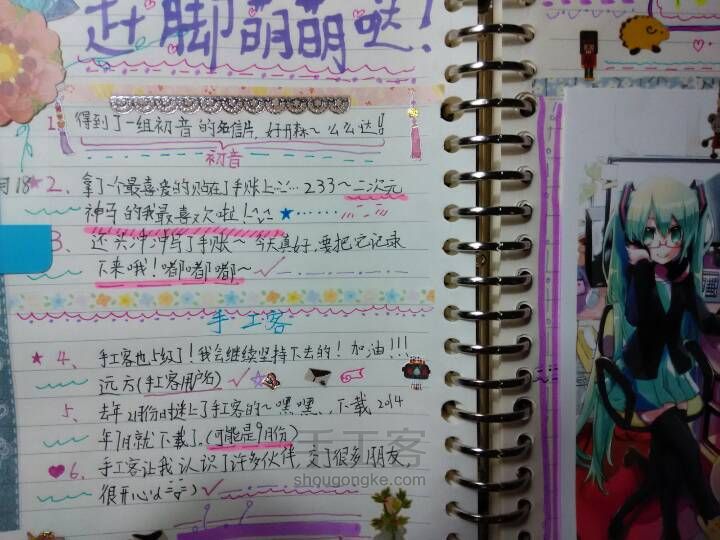 赶脚萌萌哒!
1. 得到了一组初音的名信片,好开森~么么达!!
初音
月18 ★2. 拿了个最喜爱的贴在了手账上…… 233~二次元
神马的我最喜欢啦!~~
3. 还兴冲冲写了手账~今天真好,要把它记录
下来哦!嘟嘟嘟~
手工客
★4. 手工客也上续了!我会继续坚持下去的!加油!!!
远方(手工客用户名)
5. 去年 月份时迷上了手工客的~嘿嘿、下载2014
年7月就下载了.(可能是9月份)
♥6. 手工客让我认识了许多伙伴,交了很多朋友,
很开心
手工客
shougongke.com